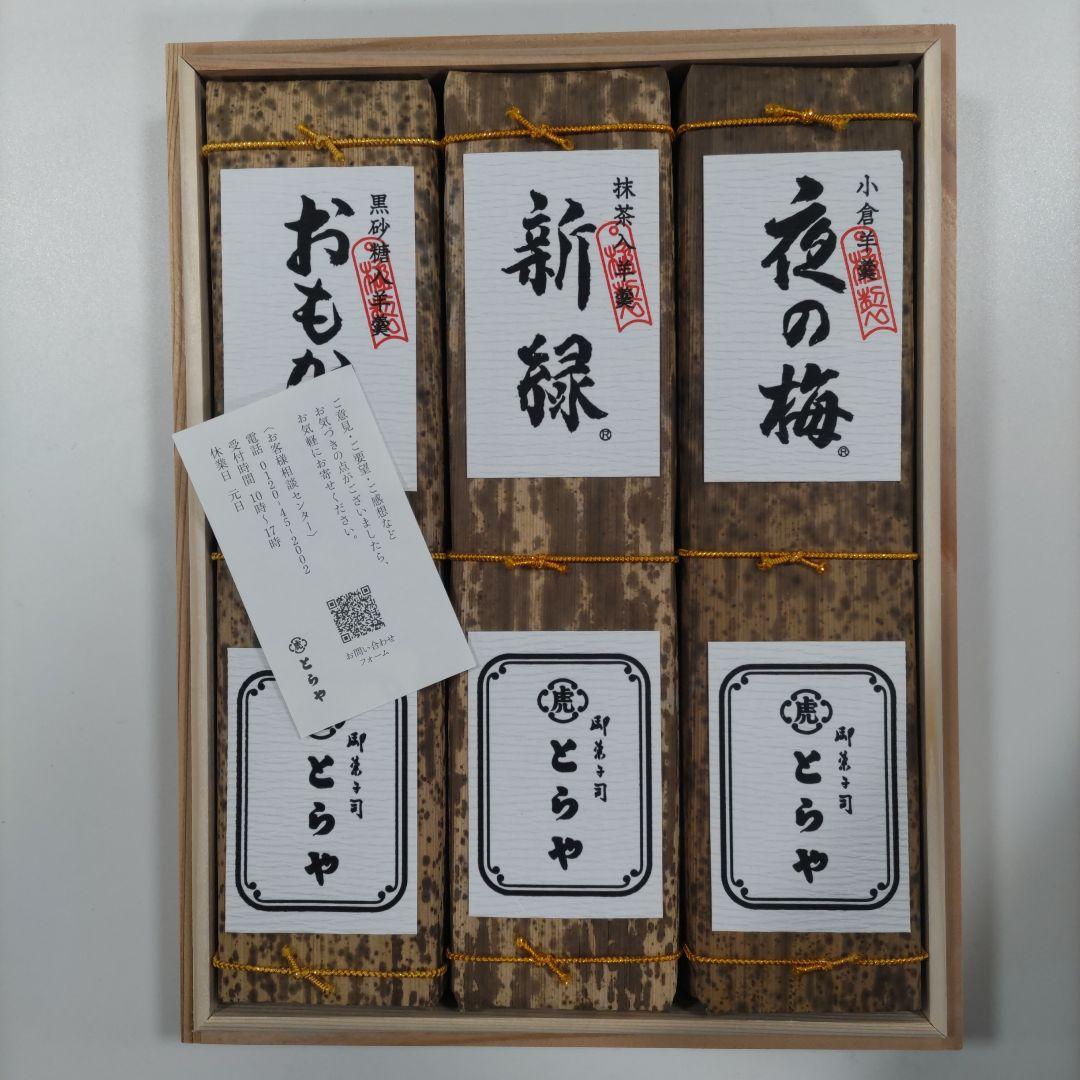 小倉羊羹
夜の梅®
虎
御菓子司
とらや
抹茶入羊羹
新緑®
虎
御菓子司
とらや
黒砂糖入羊羹
おもか
御菓子司
とらや
ご意見・ご要望・ご感想など
お気づきの点がございましたら、
お気軽にお寄せください。
〈お客様相談センター〉
電話 0120-45-2002
受付時間 10時〜17時
休業日 元日
お問い合わせ
フォーム
虎
とらや